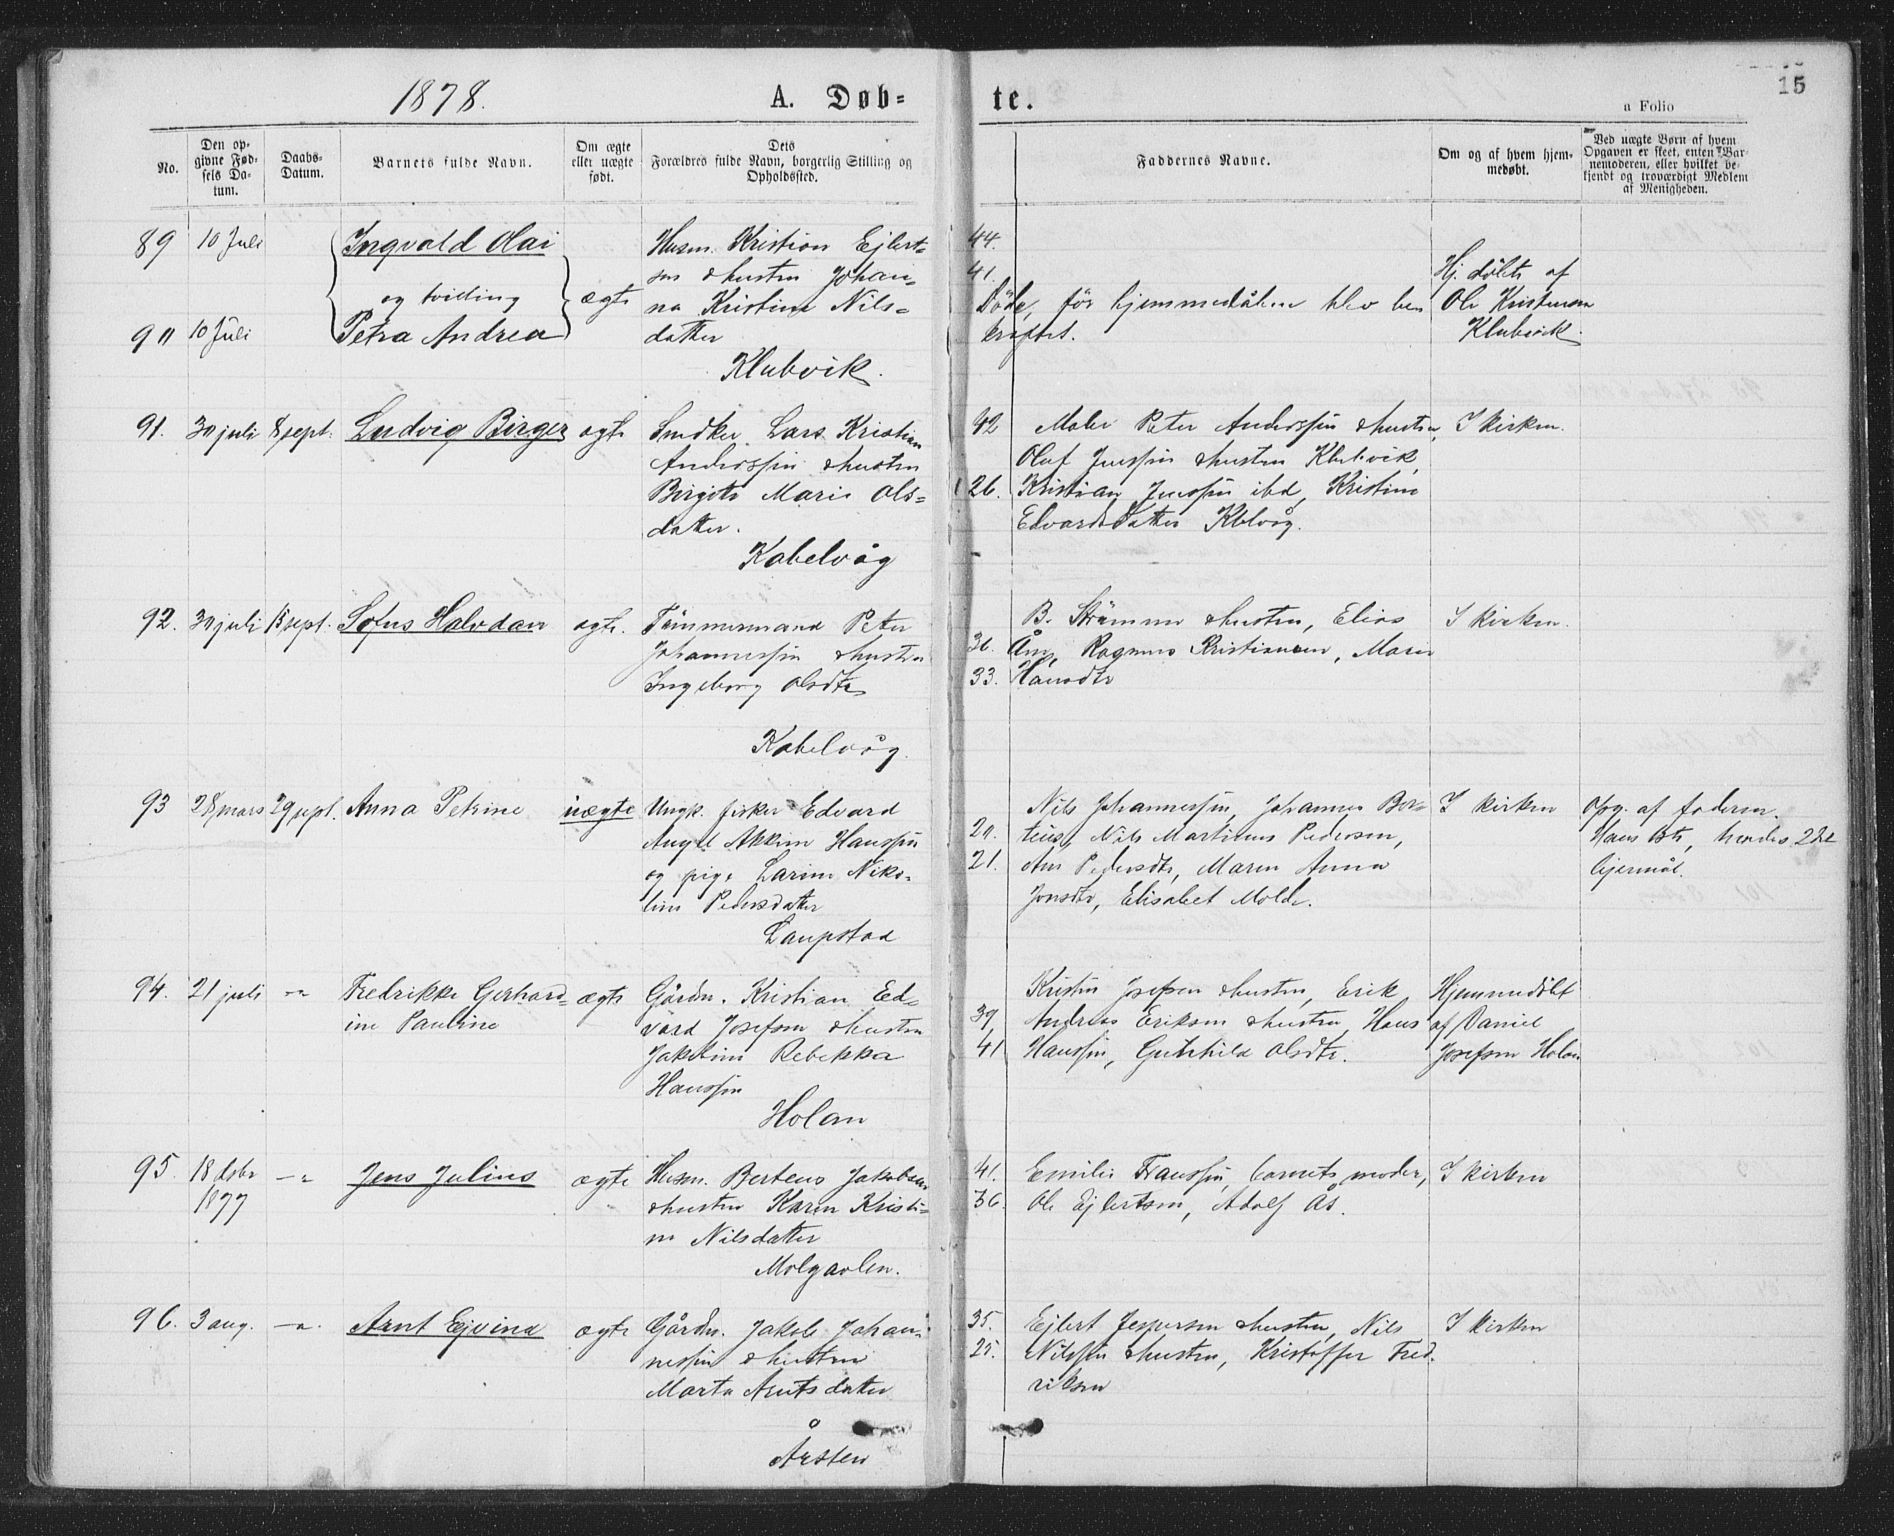 1878.
A. Døb=
te.
15
a Folio
No.
Den op-
givne Fød-
sels Da-
tum.
Daabs-
Datum.
Barnets fulde Navn.
Om ægte
eller uægte
født.
Dets
Forældres fulde Navn, borgerlig Stilling og
Opholdssted.
Faddernes Navne.
Om og af hvem hjem-
medøbt.
Ved uægte Børn af hvem
Opgaven er skeet, enten Bar-
nemoderen, eller hvilket be-
kjendt og troværdigt Medlem
af Menigheden.
89
10 Juli
Ingvald Olai
og tvilling
90
10 Juli
Petra Andrea
ægte
Husm. Kristian Ejlert=
sen & hustru Johan=
na Kristine Nils=
datter
Klubvik.
44.
41.
Döde, för hjemmedåben blev be
kræftet.
Hj. döbte af
Ole Kristensen
Klubvik
91.
30 juli
8 sept.
Ludvig Birger
ægte
Snedker Lars Kristian
Anderssön & hustru
Birgite Marie Ols=
datter.
Kabelvåg
42
26.
Maler Peter Anderssön & hustru,
Oluf Jenssön & hustru Klubvik,
Kristian Jenssön ibd, Kristine
Edvardsdatter Kblvåg.
I kirken.
92.
30 juli
15 sept.
Sofus Halvdan
ægte.
Tömmermand Peter
Johannessön & hustru
Ingeborg Olsdtr
Kabelvåg.
36.
33.
B. Strömme & hustru, Elias
Åm, Ragnus Kristiansen, Marie
Hansdtr
I kirken.
93
28 mars
29 sept.
Anna Petrine
uægte
Ungk. fisker Edvard
Angel Akkim Hanssön
og pige Larine Niko=
line Pedersdatter
Laupstad
20.
21.
Nils Johannessön, Johannes Ber=
teus, Nils Martinus Pedersen,
Ane Pedersdtr, Maren Anna
Jonsdtr, Elisabet Molde.
I kirken
Opg. af faderen.
Hans 1ste, hendes 2det
lejermål.
94.
21 juli
–"
Fredrikke Gerhard=
ine Pauline
ægte
Gårdm. Kristian Ed=
vard Josefsen & hustru
Jakobine Rebekka
Hanssön
Holan
39
41
Kristen Josefsen & hustru, Erik
Andreas Eriksen & hustru, Hans
Hanssön, Gunhild Olsdtr.
Hjemmedöbt
af Daniel
Josefsen Holan
95.
18 dcbr
1877
–"
Jens Julius
ægte
Husm. Berteus Jakobsen
& hustru Karen Kristi=
ne Nilsdatter
Molgavlen.
41.
36.
Emilie Franssön, barnets moder,
Ole Ejlertsen, Adolf Ås.
I kirken
96.
3 aug.
–".
Arnt Ejvind
ægte
Gårdm. Jakob Johan=
nessön & hustru
Marta Arntsdatter
Årsten
35.
25.
Ejlert Jespersen & hustru, Nils
Nilssön & hustru, Kristoffer Fred=
riksen
I kirken